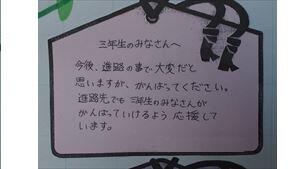 三年生のみなさんへ
今後、進路の事で大変だと
思いますが、がんばってください。
進路先でも三年生のみなさんが
がんばっていけるよう応援して
います。